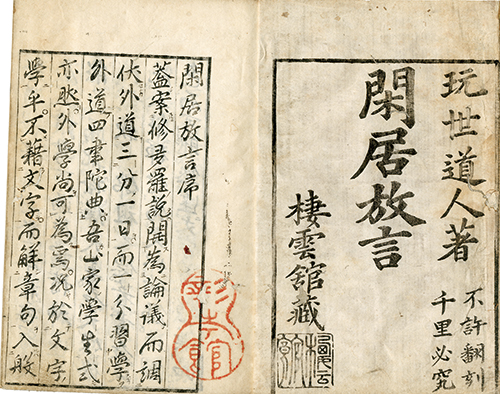 玩世道人著
閑居放言
不許翻刻
千里必究
棲雲舘藏
閑居放言序
蓋案修多羅說開為論議而調
伏外道三分一日而一分習學
外道四韋陀典吾山家學生式
亦然外學尚可為焉况於文字
學乎不藉文字而解章句入般